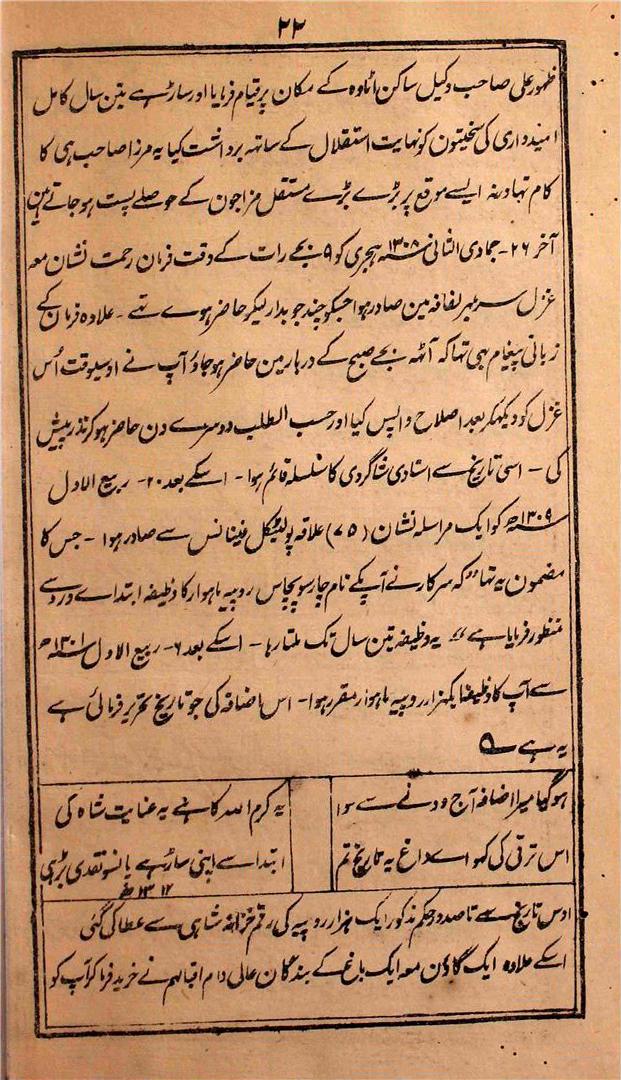 ۲۲
ظہور علی صاحب وکیل ساکن اٹاوہ کے مکان پر قیام فرمایا اور ساڑہے تین سال کامل
امیدواری کی سختیون کو نہایت استقلال کے ساتھہ برداشت کیا یہ مرزا صاحب ہی کا
کام تہا ورنہ ایسے موقع پر بڑے بڑے مستقل مزاجون کے حوصلے پست ہو جاتے ہین
آخر ۲۶- جمادی الثانی ۱۳۰۸سنہ ہجری کو ۹ بجے رات کے وقت فرمان رحمت نشان معہ
غزل سر بمہر لفافہ مین صادر ہوا جسکو چند چوبدار لیکر حاضر ہوے تہے - علاوہ فرمان کے
زبانی پیغام بہی تہا کہ آٹہہ بجے صبح کے دربار مین حاضر ہو جاؤ آپ نے اوسیوقت اُس
غزل کو دیکہکر بعد اصلاح واپس کیا اور حسب الطلب دوسرے دن حاضر ہو کر نذر پیش
کی - اسی تاریخ سے استادی شاگردی کا سلسلہ قائم ہوا - اسکے بعد ۲۰- ربیع الاول
۱۳۰۹سنہ ھ کو ایک مراسلہ نشان (۷۵) علاقہ پولیٹیکل فینانس سے صادر ہوا - جس کا
مضمون یہ تہا " کہ سرکار نے آپکے نام چار سو پچاس روپیہ ماہوار کا وظیفہ ابتداے ورد سے
منظور فرمایا ہے " یہ وظیفہ تین سال تک ملتا رہا - اسکے بعد ۶- ربیع الاول ۱۳۰۱سنہ ھ
سے آپ کا وظیفہ ایکہزار روپیہ ماہوار مقرر ہوا - اس اضافہ کی جو تاریخ تحریر فرمائی ہے
یہ ہے
ہو گیا میرا اضافہ آج دونے سے سوا یہ کرم اللہ کا ہے یہ عنایت شاہ کی
اس ترقی کی کہو اے داغ یہ تاریخ تم ابتدا سے اپنی ساڑہے پانسو نقدی بڑہی
۱۳۱۲ھ
اوس تاریخ سے تا صدور حکم مذکور ایک ہزار روپیہ کی رقم خزانہ شاہی سے عطا کی گئی
اسکے علاوہ ایک گاؤن معہ ایک باغ کے بندگان عالی دام اقبالہم نے خرید فرما کر آپ کو